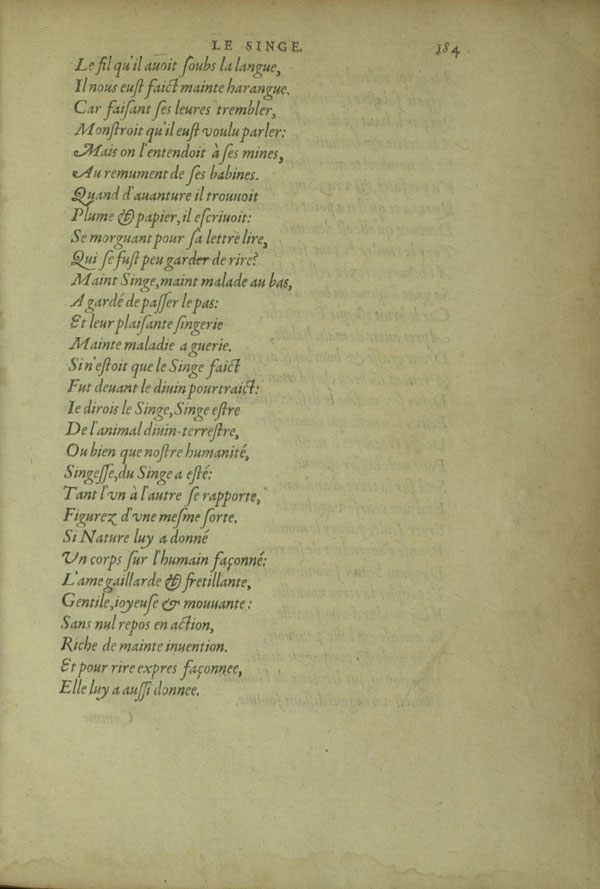 LE SINGE. 184
Le fil qu'il auoit ſoubs la langue,
Il nous euſt faict mainte harangue.
Car faiſant ſes leures trembler,
Monſtroit qu'il euſt voulu parler:
Mais on l'entendoit à ſes mines,
Au remument de ſes babines.
Quand d'auanture il trouuoit
Plume & papier, il eſcriuoit:
Se morguant pour ſa lettre lire,
Qui ſe fuſt peu garder de rire?
Maint Singe, maint malade au bas,
A gardé de paſſer le pas:
Et leur plaiſante ſingerie
Mainte maladie a guerie.
Si n'eſtoit que le Singe faict
Fut deuant le diuin pourtraict:
Ie dirois le Singe, Singe eſtre
De l'animal diuin-terreſtre,
Ou bien que noſtre humanité,
Singeſſe, du Singe a eſté:
Tant l'vn à l'autre ſe rapporte,
Figurez d'vne meſme ſorte.
Si Nature luy a donné
Vn corps ſur l'humain façonné:
L'ame gaillarde & fretillante,
Gentile, ioyeuſe & mouuante:
Sans nul repos en action,
Riche de mainte inuention.
Et pour rire expres façonnee,
Elle luy a auſſi donnee.